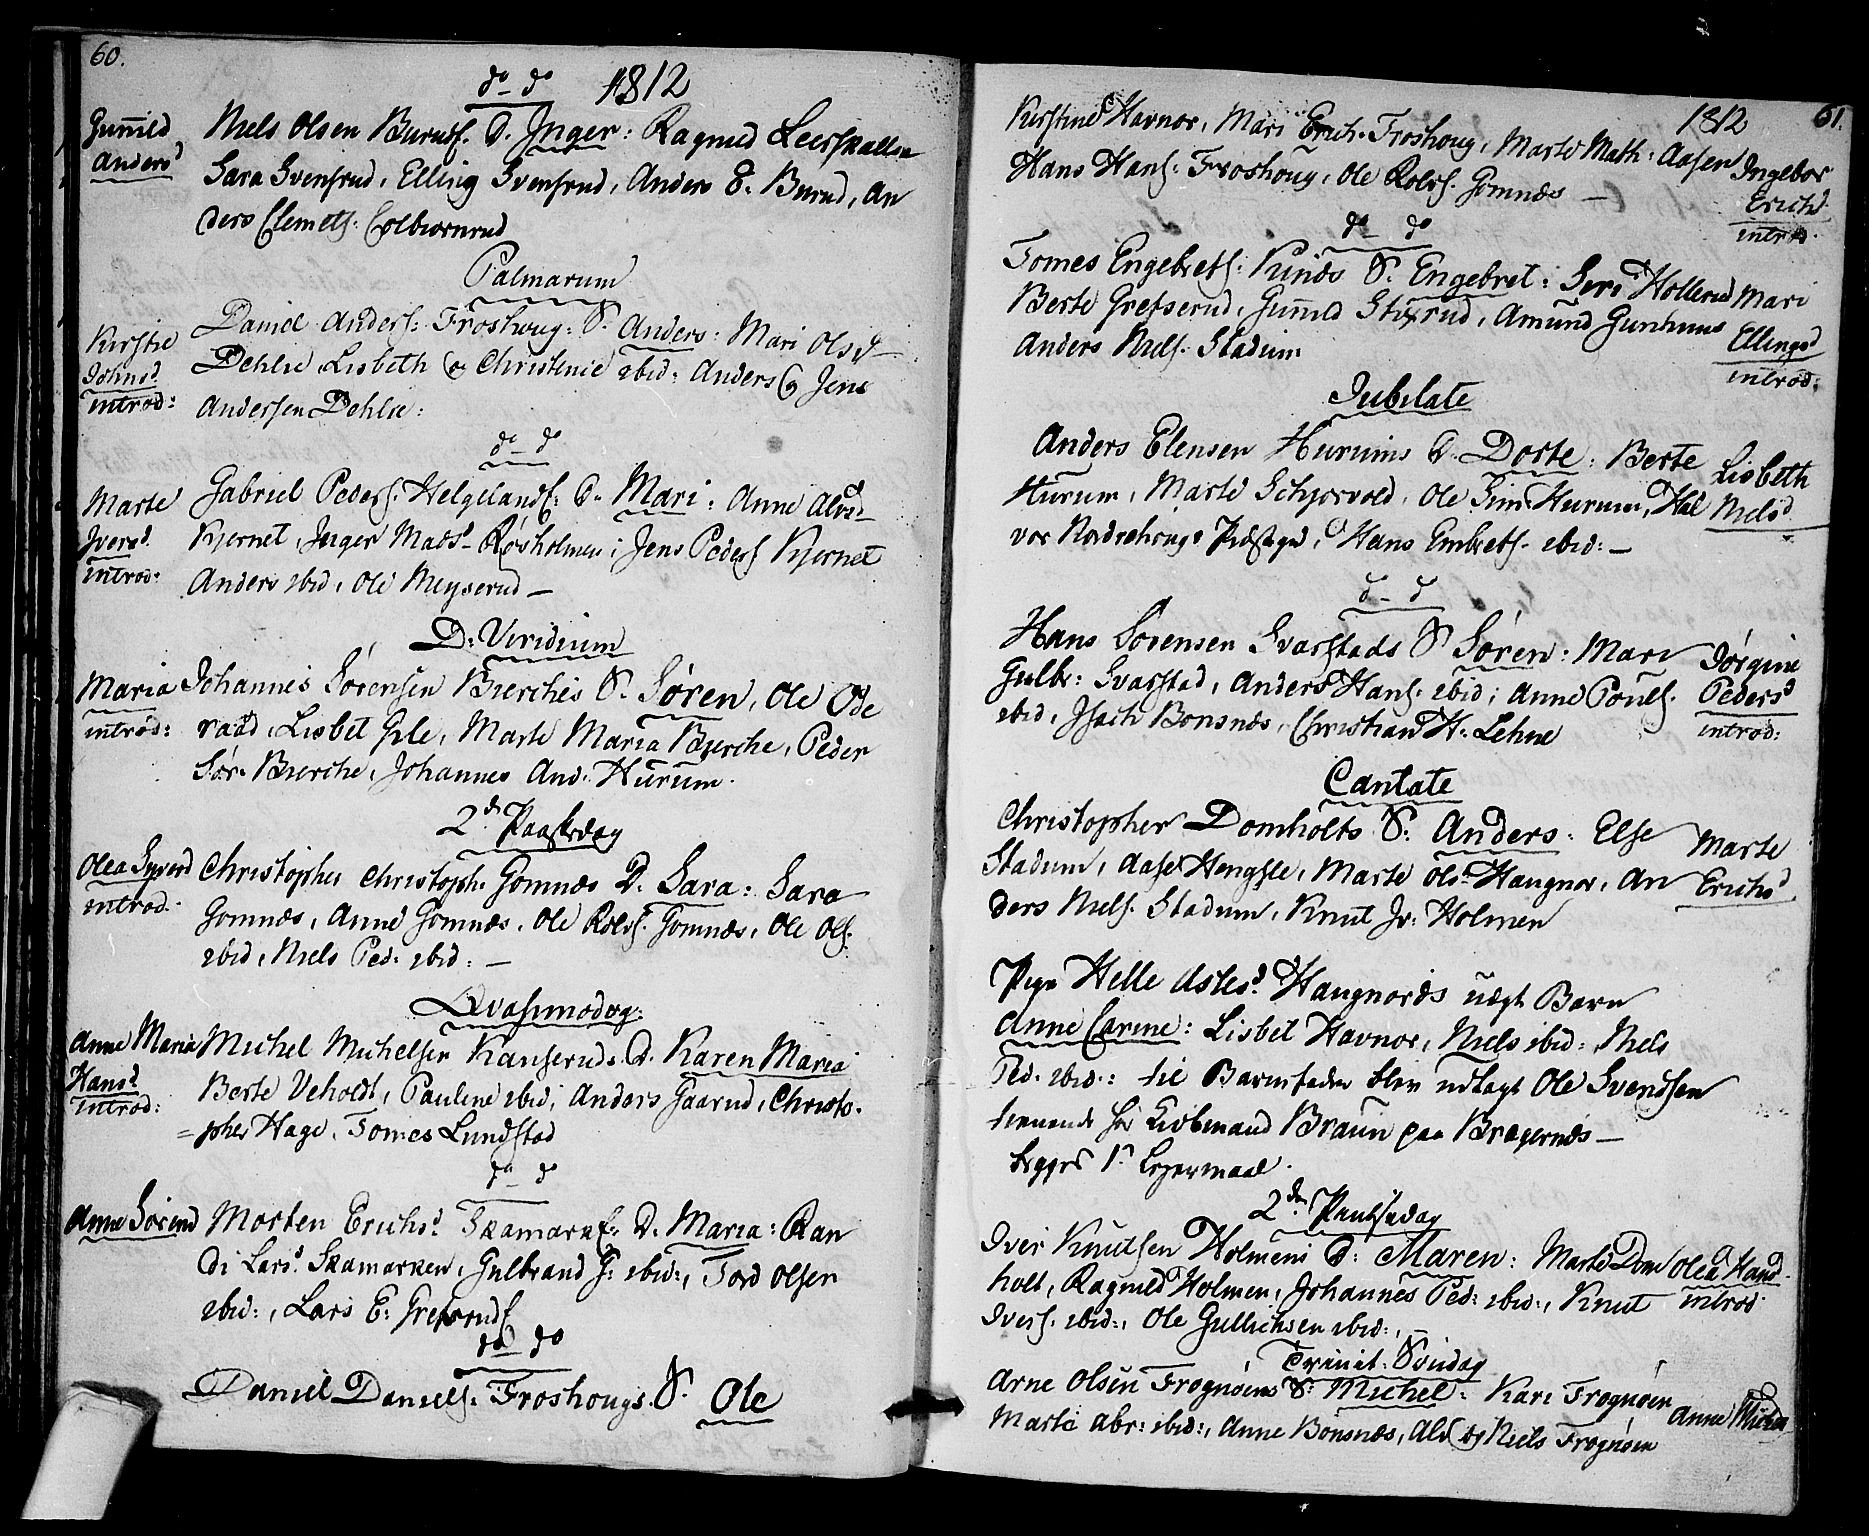 60.
do - do 1812
Gunild
Anders d
Niels Olsen Buruds. D. Inger: Ragnild Leerskallen
Sara Svensrud, Elling Svensrud, Anders E. Burud, An
ders Clemets. Colbiørnrud
Palmarum
Kirstie
Johnsd
introd:
Daniel Anders: Froshoug: S. Anders: Mari Olsd
Dehlie Lisbeth og Christenie ibid: Anders og Jens
Andersen Dehlie:
do - do
Marte
Iversd.
introd:
Gabriel Peders: Helgelands: D. Mari: Anne Alvsd
Kjernet, Inger Madsd Røsholmen, Jens Peders Kjernet
Anders ibid, Ole Meyserud -
D: Viridium
Maria
introd:
Johannes Sørensen Bierches S. Søren, Ole Ode
raad, Lisbet Gile, Marte Maria Bierche, Peder
Sør. Bierche, Johannes And. Hurum.
2den Paaskedag
Olea Syversd
introd.
Christopher Christoph. Gomnæs D. Sara: Sara
Gomnæs, Anne Gomnæs, Ole Rolvs. Gomnæs, Ole Ols.
ibid, Niels Ped. ibid: -
Qvasimodog:
Anne Maria
Hansd
introd:
Michel Michelsen Kanserud: D. Karen Maria
Berte Veholdt, Pauline ibid, Anders Gaarud, Christo-
=pher Hage, Tomes Lundstad
do - do
Anne Sørensd
Morten Erichsd. Skamarks: D. Maria: Ran
di Larsd. Skamarken, Gulbrand G: ibid:, Tord Olsen
ibid:, Lars E: Grefsrud
do do
Daniel Daniels: Froshougs. S. Ole
1812 61.
Kirstine Havnor, Mari Erich. Froshoug, Marte Math: Aasen
Hans Hans. Froshoug, Ole Rolvs. Gomnæs -
Ingebor
Erichd.
introd.
do do
Tomes Engebrets: Kinds S. Engebret: Siri Hollerud
Berte Grefserud, Gunild Stixrud, Amund
Anders Niels. Stadum
Mari
Ellingsd
introd:
Jubilate
Anders Elensen Hurums D. Dorte: Berte
Hurum, Marte Schjørvold, Ole Sim. Hurum, Hal
vor Hans Embrets. ibid: -
Lisbeth
Nielsd.
d - d
Hans Sørensen Svarstads S. Søren: Mari
Gulbr: Svarstad, Anders Hans. ibid, Anne Pouls.
ibid, Isach Bonsnæs, Christian H. Lehne
Jørgine
Pedersd
introd:
Cantate
Christopher Domholts S: Anders: Else
Stadum, Aase Hengsle, Marte Olsd Haugnor, An
ders Niels. Stadum, Knut Iv: Holmen
Marte
Erichsd.
Pige Helle Aslesd. Haugnords uægt Barn
Anne Carine: Lisbet Havnor, Niels ibid: Niels
Ped. ibid: til Barnefader blev udlagt Ole Svendsen
tienende hos Kiøbmand Braun paa Bragernæs -
begges 1te Leyermaal.
2den Pintsedag
Iver Knutsen Holmens D: Maren: Marte Dom
holt, Ragnild Holmen, Johannes Ped: ibid:, Knut
Ivers. ibid:, Ole Gullichsen ibid:
Olea Hansd.
introd.
Trinit. Søndag
Arne Olsen Frognøens S: Michel: Kari Frognøen
Marte Abr: ibid:, Anne Bonsnæs, Alv og Niels Frognøen
Anne Michelsd